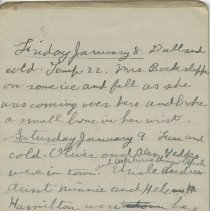 Friday January 8. Dull and
cold. Temp 22. Mrs. Rock slipped
on some ice and fell as she
was coming over here and broke
a small bone in her wrist.
Saturday January 9. Fine and
cold. Oliver and Alex Geddes
were in town. Uncle Andrew
Aunt Minnie and Helen
Hamilton were